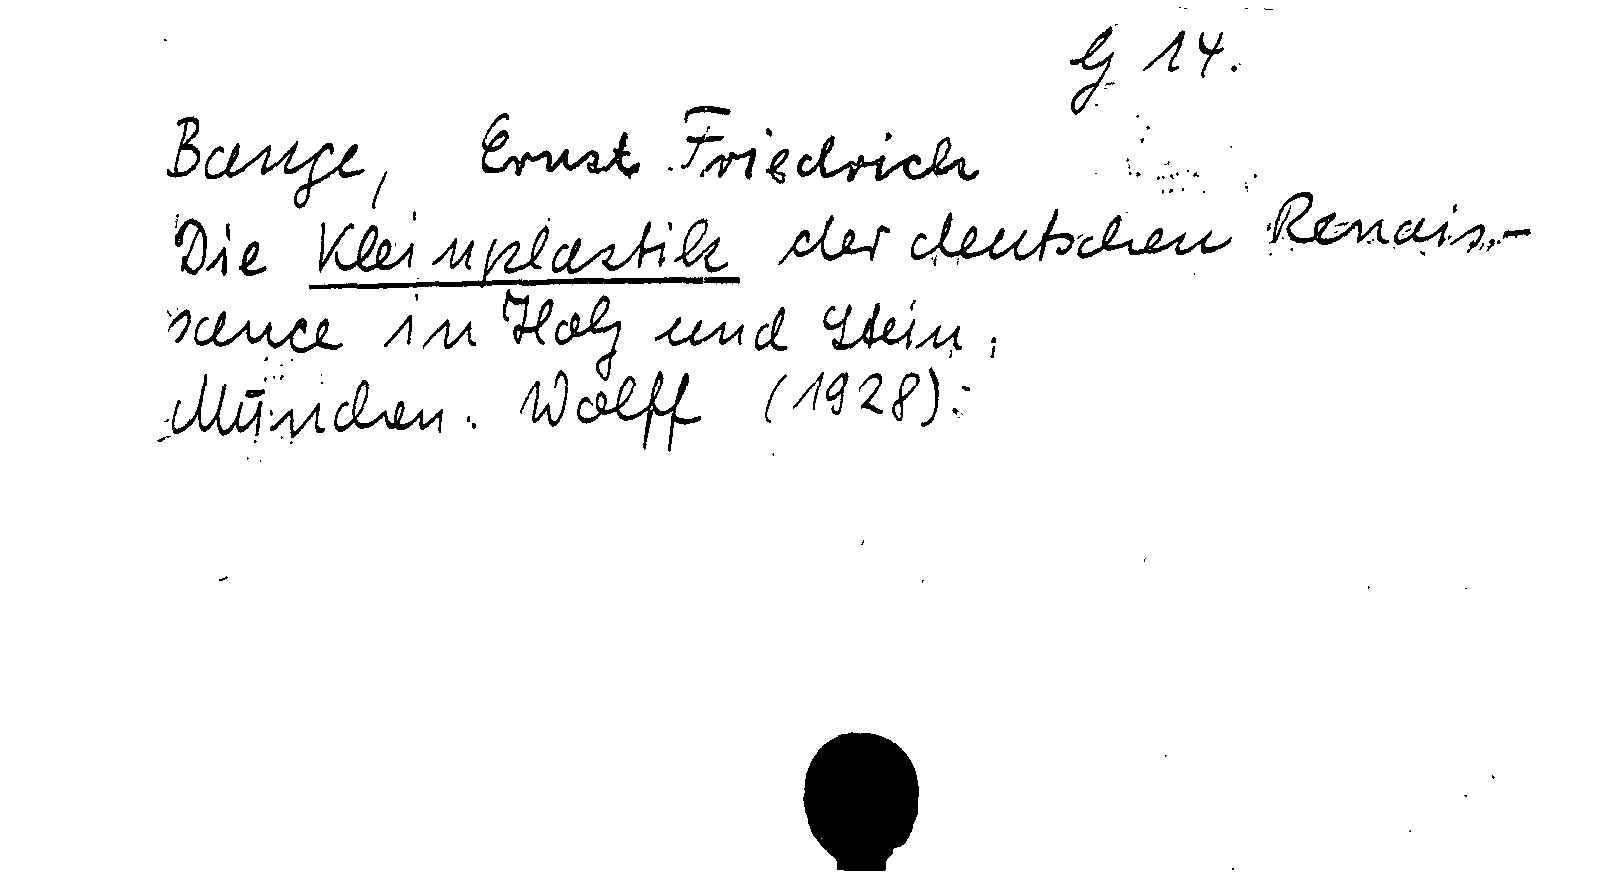 G 14.
Bange, Ernst Friedrich
Die Kleinplastik der deutschen Renais-
sance in Holz und Stein.
München. Wolff (1928).